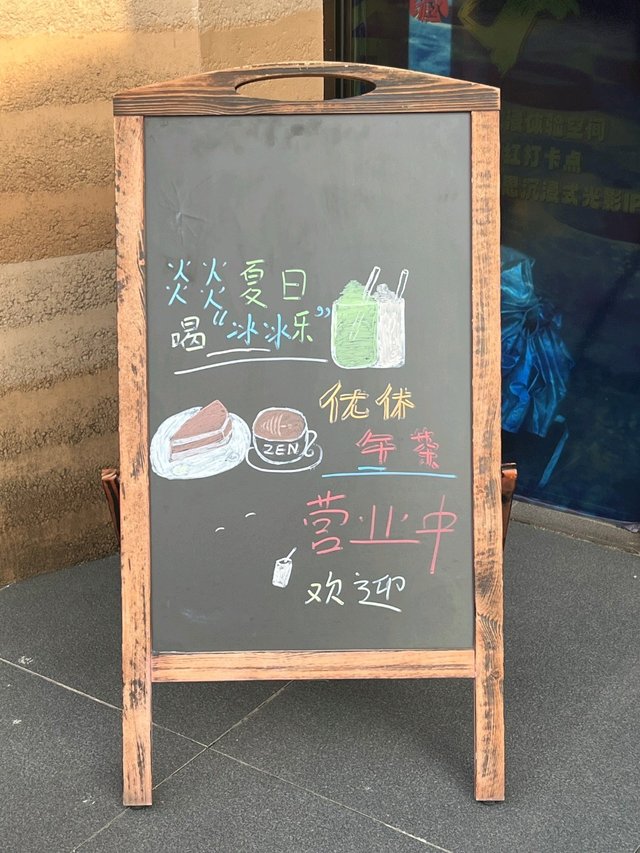 炎炎夏日
喝“冰冰乐”
ZEN
优休
年茶
营业中
欢迎
体验空间
红打卡点
沉浸式光影IP